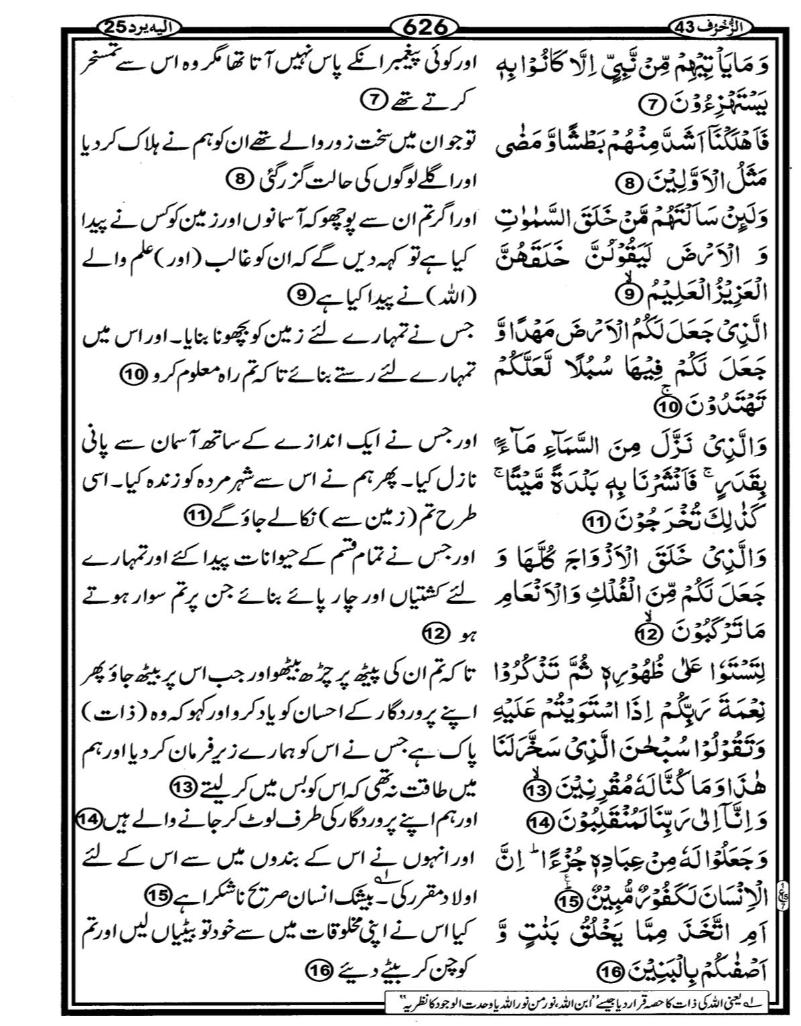 الزُّخْرُف 43
626
الیہ یرد 25
وَمَا يَاْتِيْهِمْ مِّنْ نَّبِيٍّ اِلَّا كَانُوْا بِهٖ
يَسْتَهْزِءُوْنَ 7
فَاَهْلَكْنَاۤ اَشَدَّ مِنْهُمْ بَطْشًا وَّ مَضٰى
مَثَلُ الْاَوَّلِيْنَ 8
وَلَىِٕنْ سَاَلْتَهُمْ مَّنْ خَلَقَ السَّمٰوٰتِ
وَ الْاَرْضَ لَيَقُوْلُنَّ خَلَقَهُنَّ
الْعَزِيْزُ الْعَلِيْمُ ۙ 9
الَّذِيْ جَعَلَ لَكُمُ الْاَرْضَ مَهْدًا وَّ
جَعَلَ لَكُمْ فِيْهَا سُبُلًا لَّعَلَّكُمْ
تَهْتَدُوْنَ ۚ 10
وَالَّذِيْ نَزَّلَ مِنَ السَّمَآءِ مَآءًۢ
بِقَدَرٍ ۚ فَاَنْشَرْنَا بِهٖ بَلْدَةً مَّيْتًا ۚ
كَذٰلِكَ تُخْرَجُوْنَ 11
وَالَّذِيْ خَلَقَ الْاَزْوَاجَ كُلَّهَا وَ
جَعَلَ لَكُمْ مِّنَ الْفُلْكِ وَالْاَنْعَامِ
مَا تَرْكَبُوْنَ ۙ 12
لِتَسْتَوٗا عَلٰى ظُهُوْرِهٖ ثُمَّ تَذْكُرُوْا
نِعْمَةَ رَبِّكُمْ اِذَا اسْتَوَيْتُمْ عَلَيْهِ
وَتَقُوْلُوْا سُبْحٰنَ الَّذِيْ سَخَّرَ لَنَا
هٰذَا وَمَا كُنَّا لَهٗ مُقْرِنِيْنَ ۙ 13
وَاِنَّاۤ اِلٰى رَبِّنَا لَمُنْقَلِبُوْنَ 14
وَجَعَلُوْا لَهٗ مِنْ عِبَادِهٖ جُزْءًا ؕ اِنَّ
الْاِنْسَانَ لَكَفُوْرٌ مُّبِيْنٌ ؕ 15
اَمِ اتَّخَذَ مِمَّا يَخْلُقُ بَنٰتٍ وَّ
اَصْفٰىكُمْ بِالْبَنِيْنَ 16
اور کوئی پیغمبر انکے پاس نہیں آتا تھا مگر وہ اس سے تمسخر
کرتے تھے 7
تو جو ان میں سخت زور والے تھے ان کو ہم نے ہلاک کر دیا
اور اگلے لوگوں کی حالت گزر گئی 8
اور اگر تم ان سے پوچھو کہ آسمانوں اور زمین کو کس نے پیدا
کیا ہے تو کہہ دیں گے کہ ان کو غالب (اور) علم والے
(اللہ) نے پیدا کیا ہے 9
جس نے تمہارے لئے زمین کو بچھونا بنایا۔ اور اس میں
تمہارے لئے رستے بنائے تاکہ تم راہ معلوم کرو 10
اور جس نے ایک اندازے کے ساتھ آسمان سے پانی
نازل کیا۔ پھر ہم نے اس سے شہر مردہ کو زندہ کیا۔ اسی
طرح تم (زمین سے) نکالے جاؤ گے 11
اور جس نے تمام قسم کے حیوانات پیدا کئے اور تمہارے
لئے کشتیاں اور چار پائے بنائے جن پر تم سوار ہوتے
ہو 12
تاکہ تم ان کی پیٹھ پر چڑھ بیٹھو اور جب اس پر بیٹھ جاؤ پھر
اپنے پروردگار کے احسان کو یاد کرو اور کہو کہ وہ (ذات)
پاک ہے جس نے اس کو ہمارے زیرِ فرمان کر دیا اور ہم
میں طاقت نہ تھی کہ اس کو بس میں کر لیتے 13
اور ہم اپنے پروردگار کی طرف لوٹ کر جانے والے ہیں 14
اور انہوں نے اس کے بندوں میں سے اس کے لئے
اولاد مقرر کی۔ بیشک انسان صریح ناشکرا ہے 15
کیا اس نے اپنی مخلوقات میں سے خود تو بیٹیاں لیں اور تم
کو چن کر بیٹے دیئے 16
یعنی اللہ کی ذات کا حصہ قرار دیا جیسے "ابن اللہ، نور من نور اللہ یا وحدت الوجود کا نظریہ"